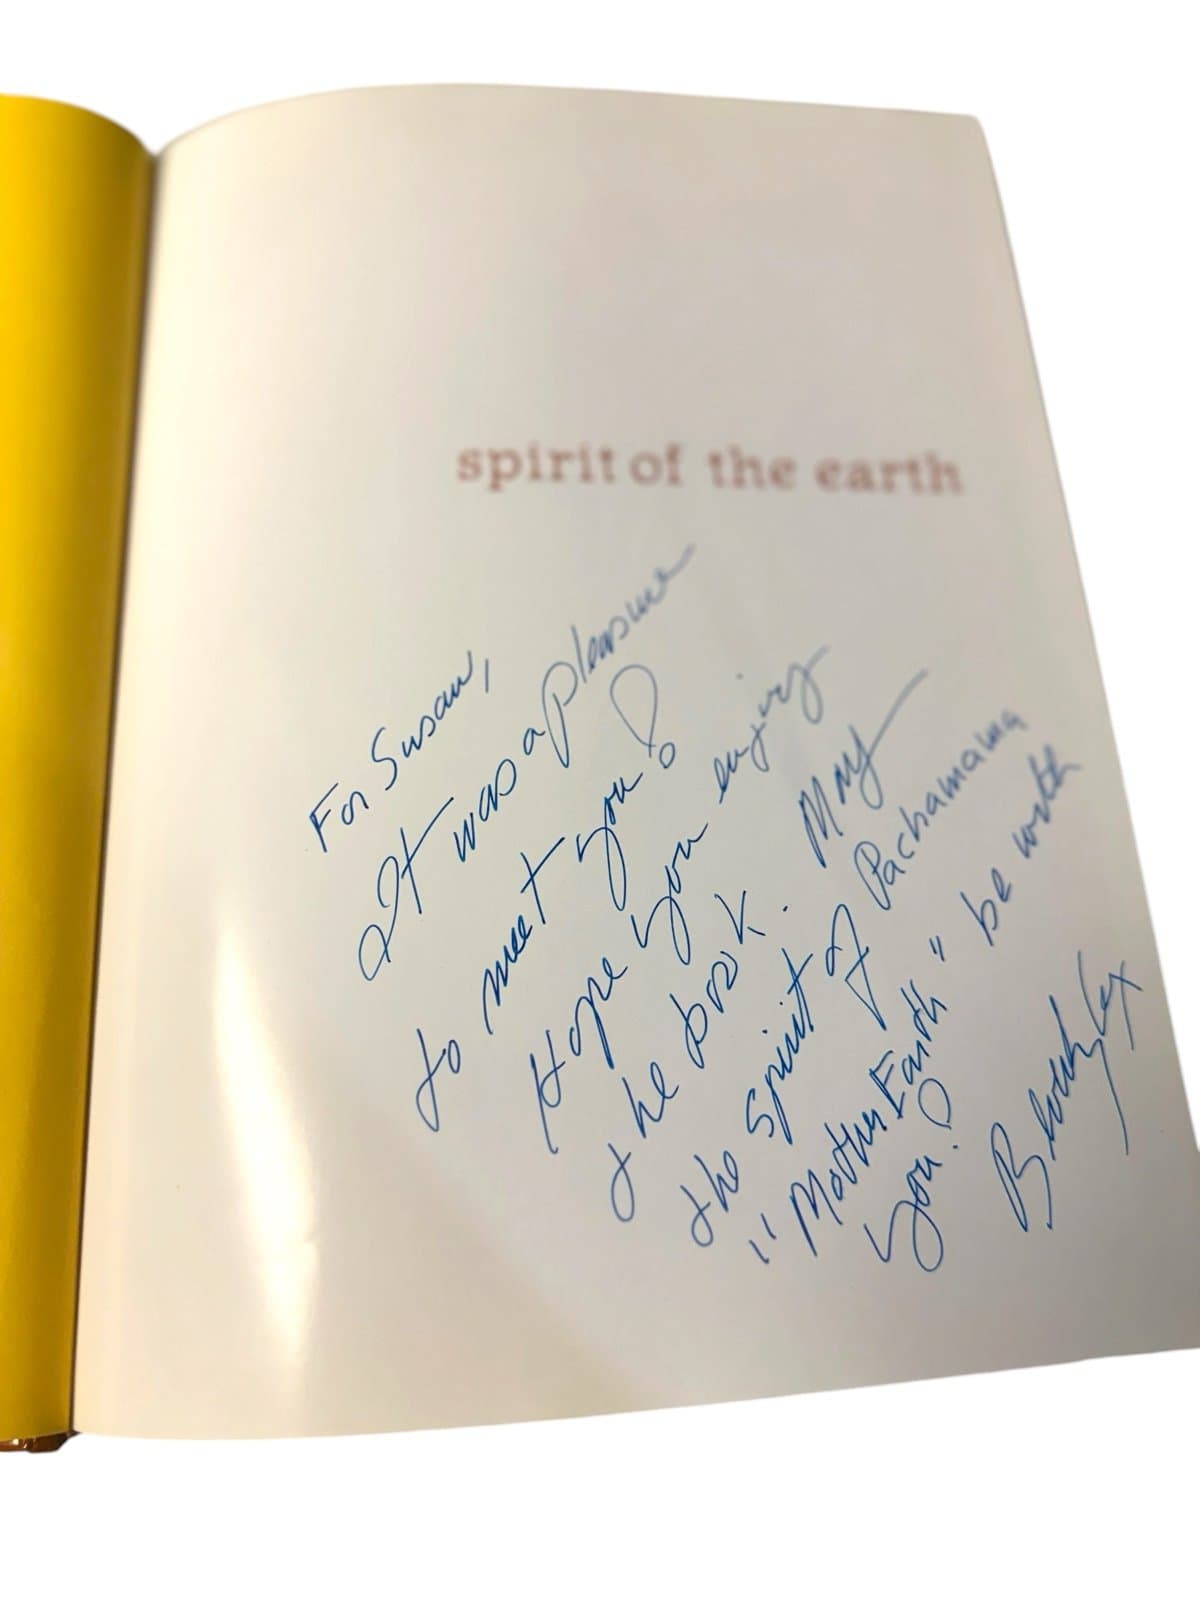 spirit of the earth
For Susan,
It was a pleasure
to meet you!
Hope you enjoy
the book. May
the spirit of Pachamama
"Mother Earth" be with
you!
Beverley Cox